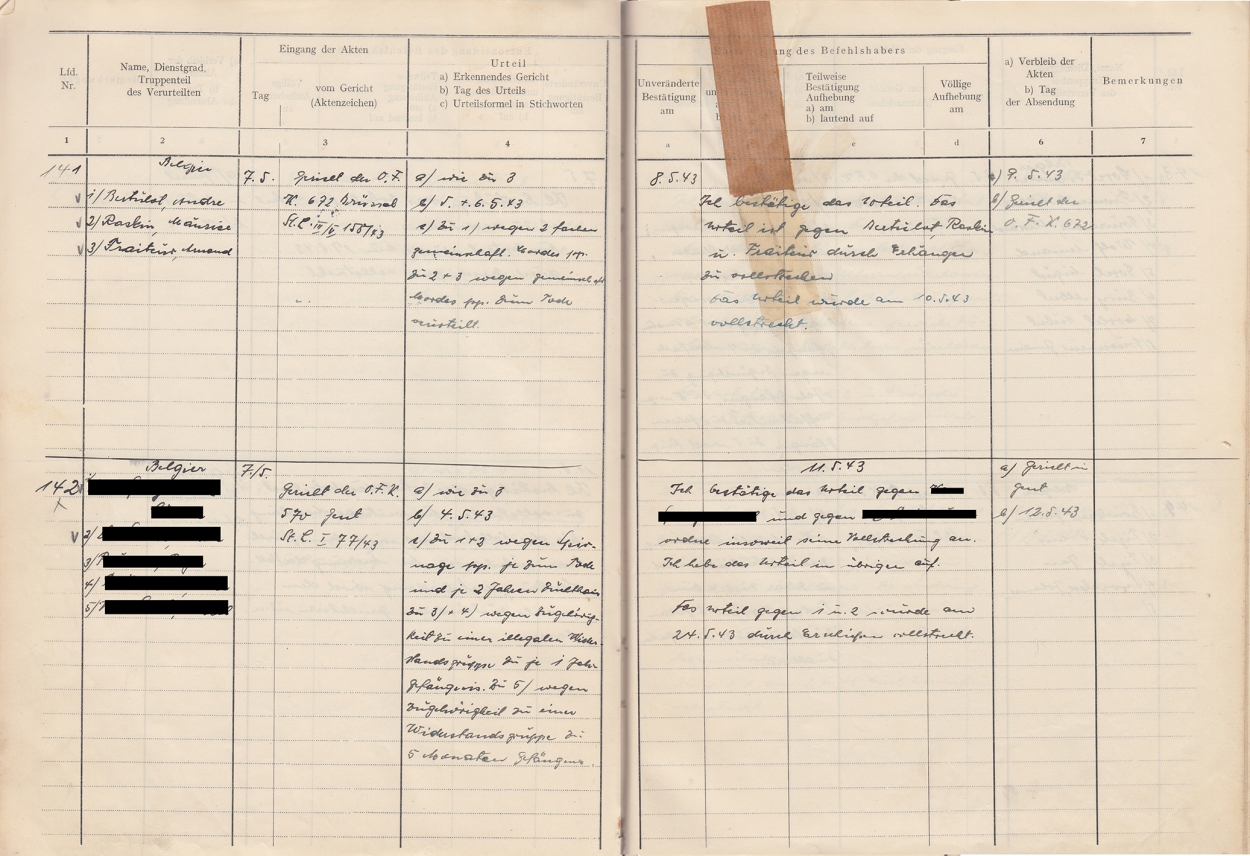 Eingang der Akten
Urteil
Bestätigung des Befehlshabers
Lfd. Nr.
Name, Dienstgrad. Truppenteil des Verurteilten
Tag
vom Gericht (Aktenzeichen)
a) Erkennendes Gericht
b) Tag des Urteils
c) Urteilsformel in Stichworten
Unveränderte Bestätigung am
Teilweise Bestätigung Aufhebung
a) am
b) lautend auf
Völlige Aufhebung am
a) Verbleib der Akten
b) Tag der Absendung
Bemerkungen
1 2 3 4 a c d 6 7
141
Belgier
1)
2) Raskin,
3)
7.5.
Gericht der O.F.K. 672 Brüssel
a) wie zu 3
b) 5. + 6.5.43
c) Zu 1) wegen 2 fachen
gemeinschaftl. Mordes pp.
zu 2 + 3 wegen
Mordes pp. zum Tode
verurteilt.
8.5.43
Ich bestätige das Urteil. Das
Urteil ist gegen Raskin
u. durch Erhängen
zu vollstrecken
Das Urteil wurde am 10.5.43
vollstreckt.
a) 9.5.43
b) Gericht der
O.F.K. 672
142
Belgier
2)
3)
4)
5)
7/5.
Gericht der O.F.K.
570 Gent
St.L. I 77/43
a) wie zu 3
b) 4.5.43
c) Zu 1+2 wegen Spio-
nage pp. je zum Tode
und je 2 Jahren Zuchthaus
Zu 3) + 4) wegen Zugehörig-
keit zu einer illegalen Wider-
standsgruppe zu je 1 Jahr
Gefängnis. Zu 5) wegen
Zugehörigkeit zu einer
Widerstandsgruppe zu
5 Monaten Gefängnis.
11.5.43
Ich bestätige das Urteil gegen
und gegen
ordne insoweit seine Vollstreckung an.
Ich hebe das Urteil im übrigen auf.
Das Urteil gegen 1 u. 2 wurde am
24.5.43 durch Erschießen vollstreckt.
a) Gericht in
Gent
b) 12.5.43